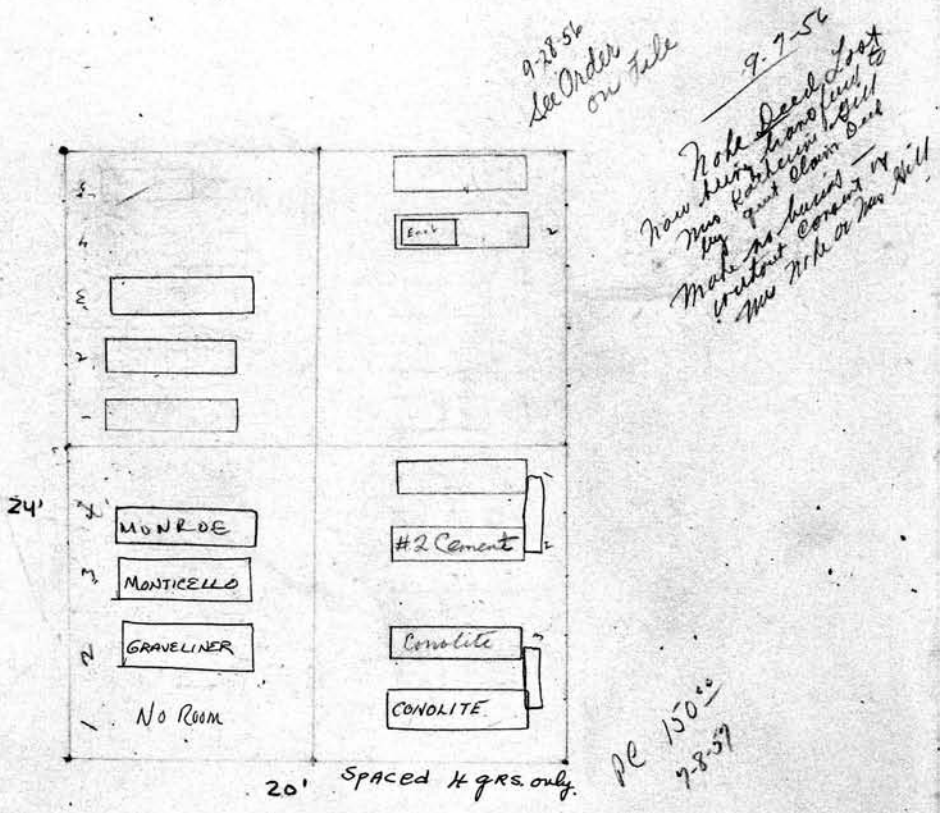 9-28-56
See Order
on File
9-7-56
Noke Deed Lost
Now being transferred to
Mrs Katherine Gill
by quit claim Deed
Make no burials —
without consent of
Mrs Noke or Mrs Gill
5
4
3
2
1
2
24'
4
3
2
1
MONROE
MONTICELLO
GRAVELINER
No Room
1
#2 Cement
2
Conolite
3
CONOLITE
20'
SPACED 4 GRS. only.
PC 150.00